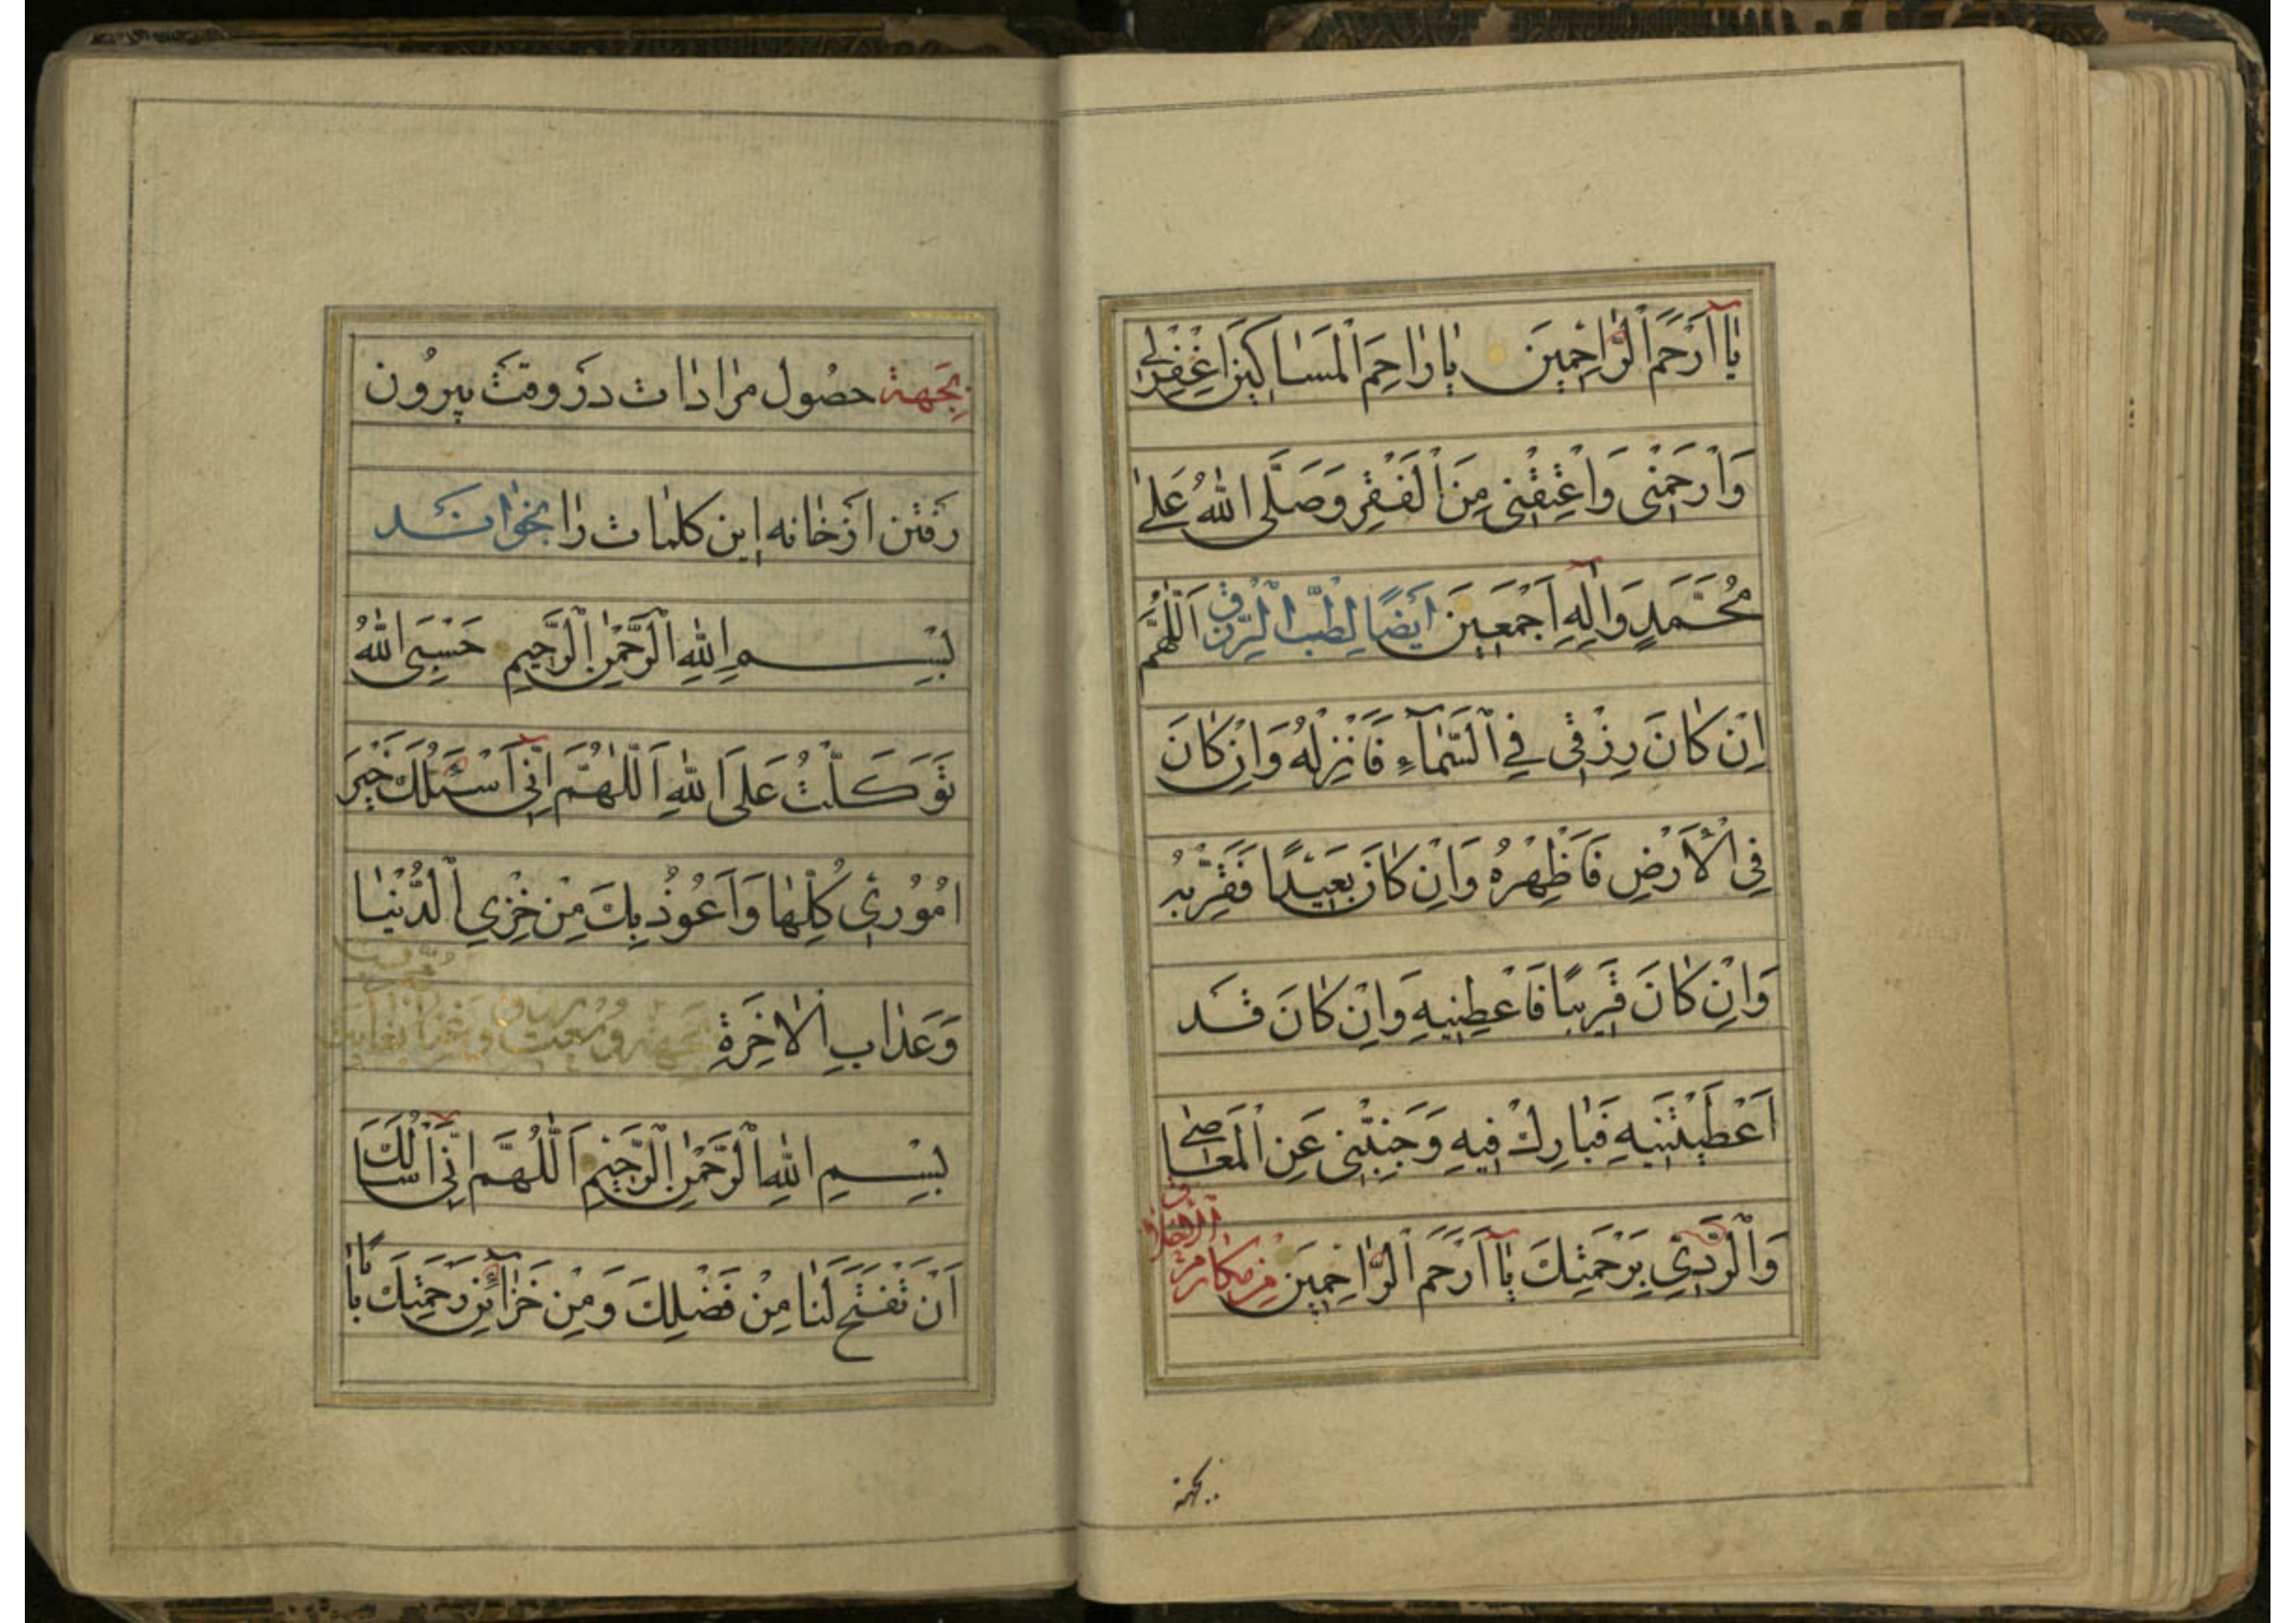 يَا أَرْحَمَ الرَّاحِمِينَ يَا رَاحِمَ الْمَسَاكِينَ اغْفِرْلِي
وَارْحَمْنِي وَاعْتِقْنِي مِنَ الْفَقْرِ وَصَلَّى اللهُ عَلَى
مُحَمَّدٍ وَالِهِ اَجْمَعِينَ اَيْضًا لِطَلَبِ الرِّزْقِ اَللّٰهُمَّ
اِنْ كَانَ رِزْقِي فِي السَّمَآءِ فَانْزِلْهُ وَاِنْ كَانَ
فِي الْاَرْضِ فَاَظْهِرْهُ وَاِنْ كَانَ بَعِيْدًا فَقَرِّبْهُ
وَاِنْ كَانَ قَرِيبًا فَاَعْطِنِيهِ وَاِنْ كَانَ قَد
اَعْطَيْتَنِيهِ فَبَارِكْ فِيهِ وَجَنِّبْنِي عَنِ الْمَعَاصِي
وَالرَّدِي بِرَحْمَتِكَ يَا اَرْحَمَ الرَّاحِمِينَ مِنْ مَكَارِمِ الْاَخْلَاقِ
بجهة
بِجَهة حصُول مرادات در وقت بيرُون
رفتن از خانه اين كلمات را بخوانند
بِسْمِ اللهِ الرَّحْمٰنِ الرَّحِيمِ حَسْبِيَ اللهُ
تَوَكَّلْتُ عَلَى اللهِ اَللّٰهُمَّ اِنِّي اَسْئَلُكَ خَيْرَ
اُمُورِي كُلِّهَا وَاَعُوذُ بِكَ مِنْ خِزْيِ الدُّنْيَا
وَعَذَابِ الْاٰخِرَةِ بجهة وسعت و غنا بغايت
بِسْمِ اللهِ الرَّحْمٰنِ الرَّحِيْمِ اَللّٰهُمَّ اِنِّي اَسْاَلُكَ
اَنْ تَفْتَحَ لَنَا مِنْ فَضْلِكَ وَمِنْ خَزَآئِنِ رَحْمَتِكَ يَا